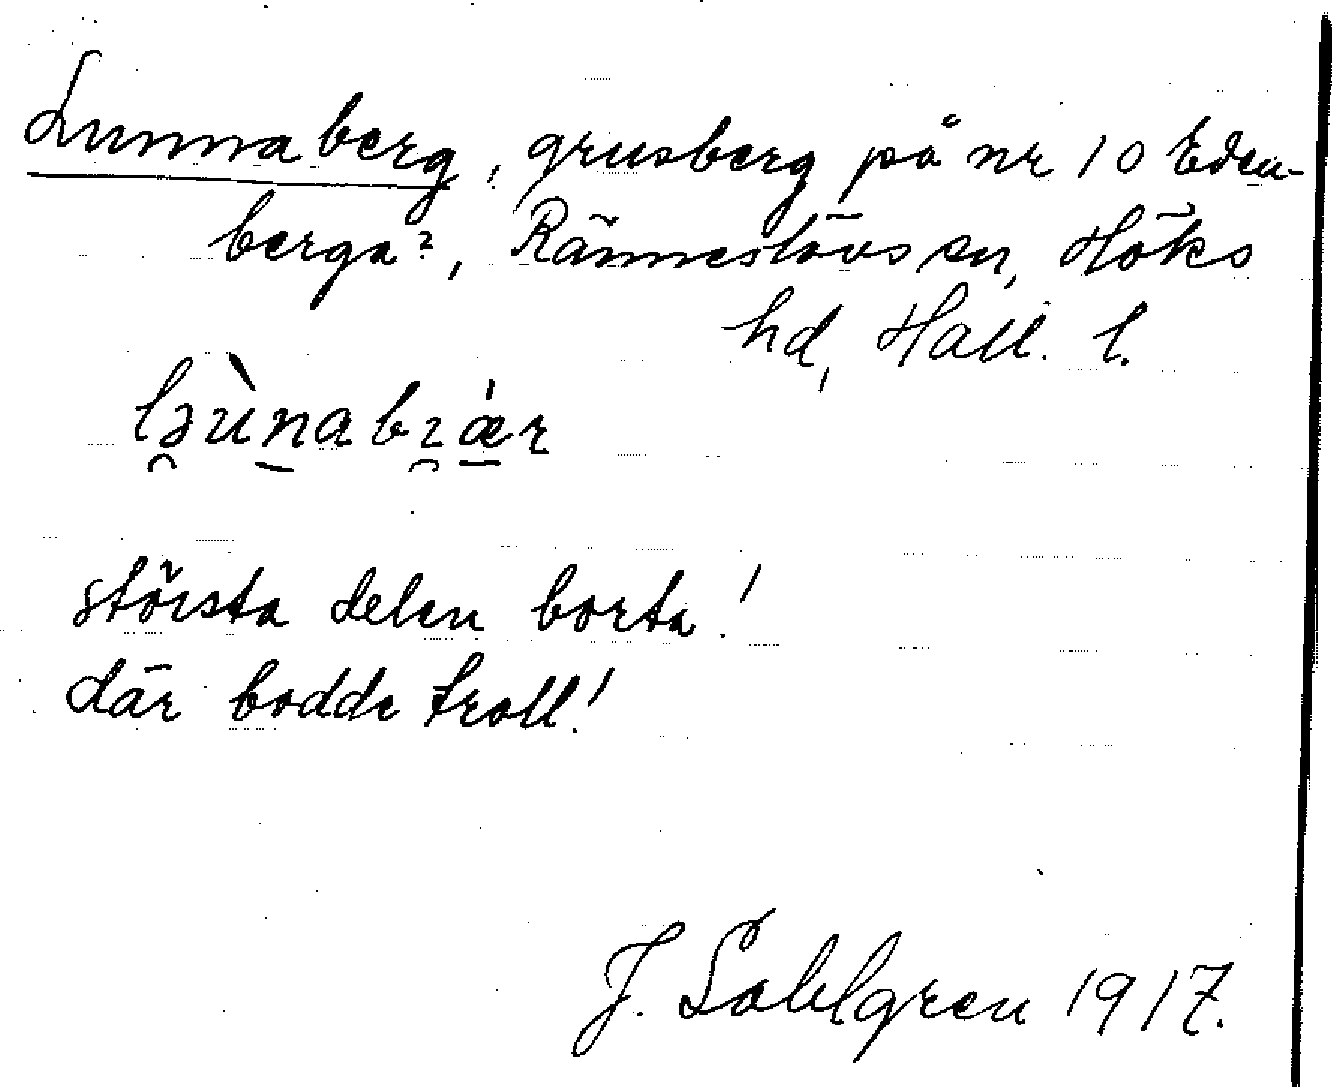 Lunnaberg, grusberg på nr 10 Eden-
berga?, Ränneslövs sn, Höks
hd, Hall. l.
största delen borta!
där bodde troll!
J. Sahlgren 1917.